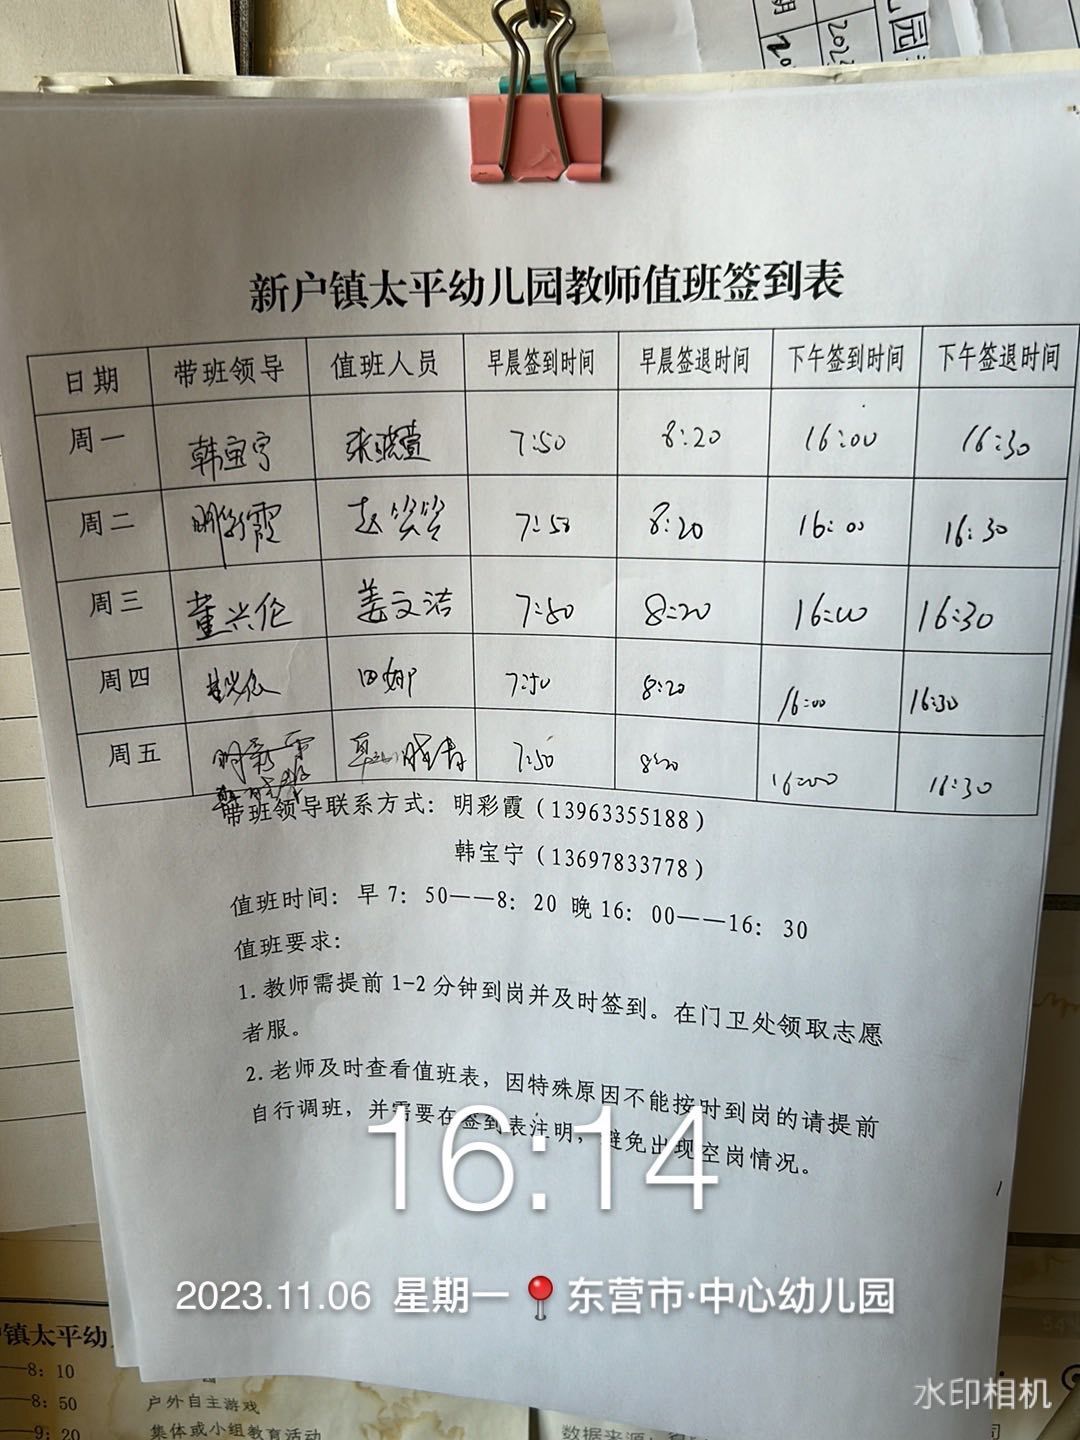 新户镇太平幼儿园教师值班签到表
日期 带班领导 值班人员 早晨签到时间 早晨签退时间 下午签到时间 下午签退时间
周一 韩宝宁 张晓萱 7:50 8:20 16:00 16:30
周二 明彩霞 赵笑笑 7:50 8:20 16:00 16:30
周三 董兴伦 姜文洁 7:50 8:20 16:00 16:30
周四 董兴伦 田娜 7:50 8:20 16:00 16:30
周五 7:50 8:20 16:00 16:30
带班领导联系方式：明彩霞（13963355188）
韩宝宁（13697833778）
值班时间：早7：50——8：20 晚16：00——16：30
值班要求：
1.教师需提前1-2分钟到岗并及时签到。在门卫处领取志愿
者服。
2.老师及时查看值班表，因特殊原因不能按时到岗的请提前
自行调班，并需要在签到表注明，避免出现空岗情况。
16:14
2023.11.06 星期一 东营市·中心幼儿园
户镇太平幼
——8：10
——8：50 户外自主游戏
—9：20 集体或小组教育活动
数据来源：
水印相机